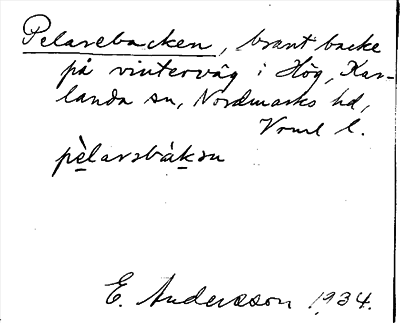 Pelarebacken, brant backe
på vinterväg i Hög, Kar-
landa sn, Nordmarks hd,
Vrml l.
pèlarəbákən
E. Andersson 1934.